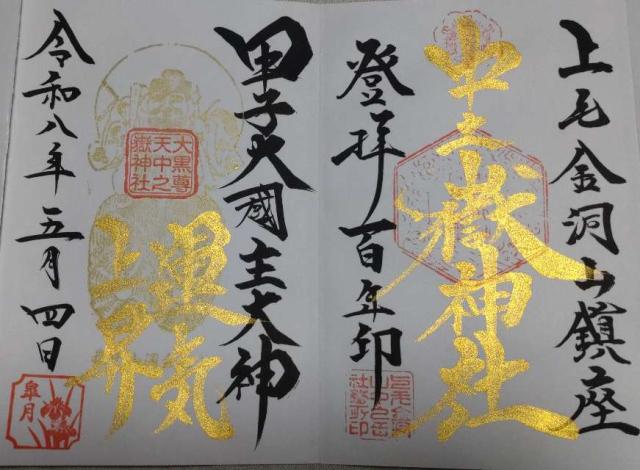 上毛金洞山鎮座
中之嶽神社
登拝百年印
甲子大國主大神
運気
上昇
大黒尊
天中之
嶽神社
令和八年五月四日
皐月